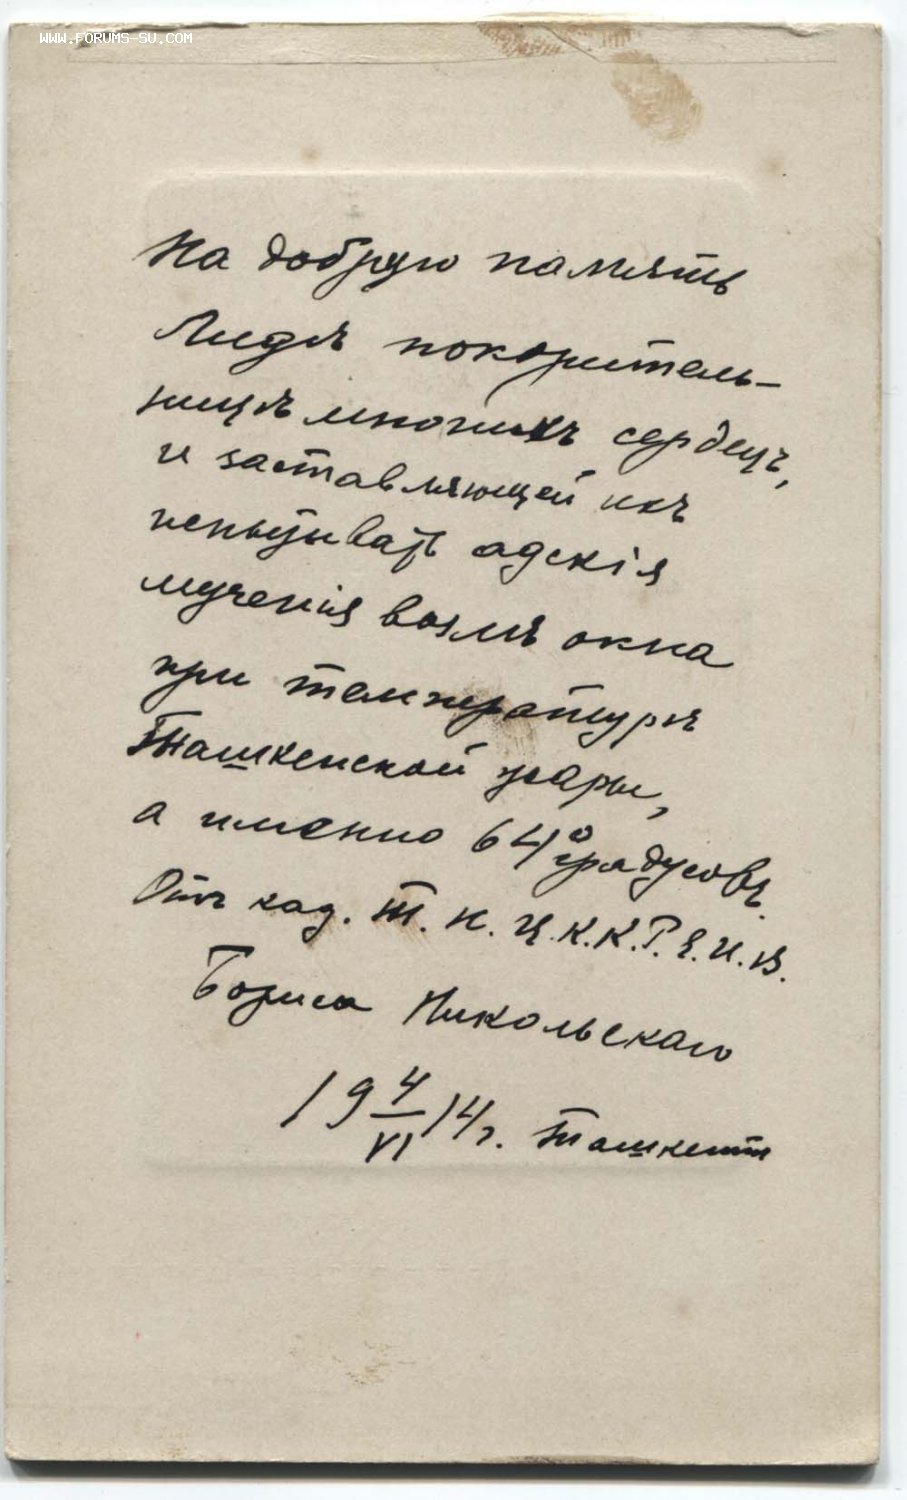 WWW.FORUMS-SU.COM
На добрую память
Лидѣ покоритель-
ницѣ многихъ сердецъ,
и заставляющей ихъ
испытывать адскія
мученія возлѣ окна
при температурѣ
Ташкенской жары,
а именно 64° градусовъ.
Отъ кад. Т. Н. Ц. К. К. Р. Е. И. В.
Бориса Никольскаго
19 4/VI 14 г. Ташкентъ